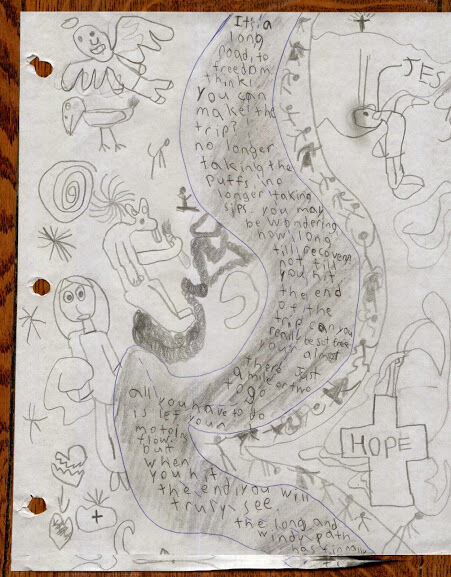 It's a
long
road, to
freedom
think
you can
make the
trip?
no longer
taking the
puffs, no
longer taking
sips. you may
be wondering
how long
till recovery
not till
you hit
the end
of the
trip can you
really be set free
your almost
there Just
a mile or two
to go
all you have to do
is let your
motoins
flow.
but
when
you hit
the end, you will
truly see
the long and
windy path
has
JES
HOPE